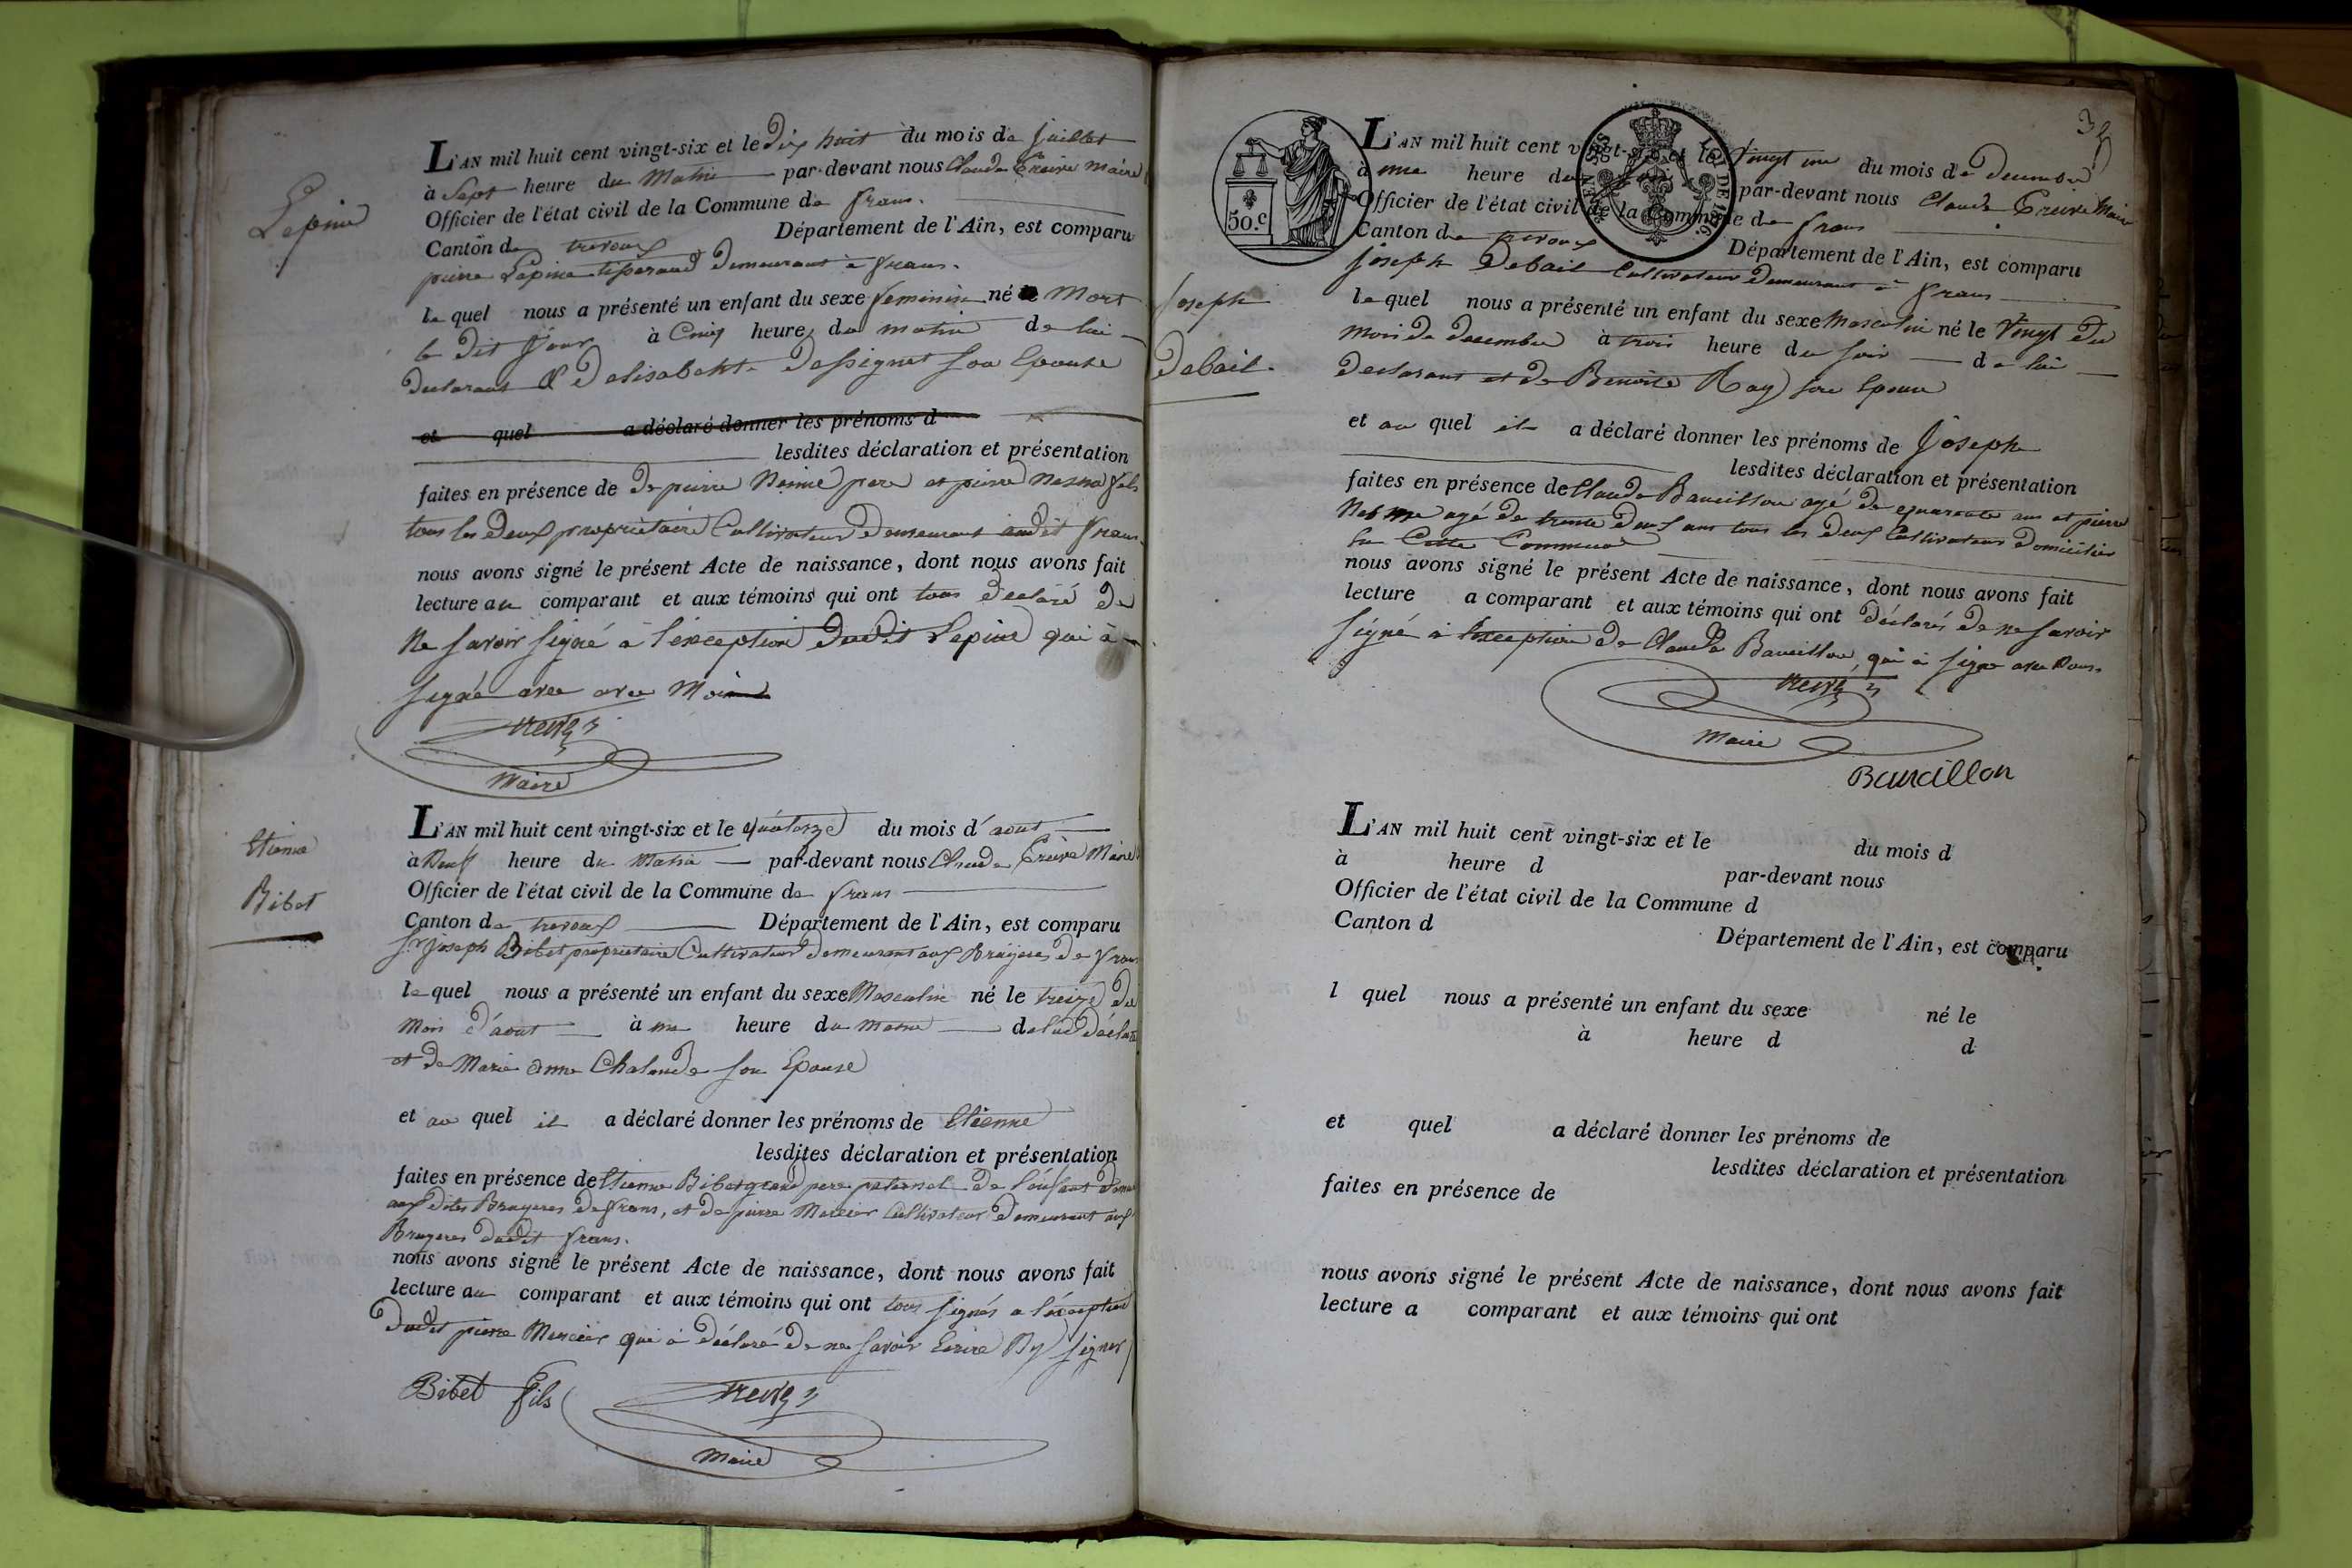 Lepine
L'AN mil huit cent vingt-six et le Dix huit du mois de Juillet
à Sept heure du Matin par-devant nous Claude Treive Maire
Officier de l'état civil de la Commune de frans.
Canton de trevoux Département de l'Ain, est comparu
pierre Lepine tisserand Demeurant à frans.
le quel nous a présenté un enfant du sexe feminin né Mort
le Dit Jour à Cinq heures du matin de lui
Declarant & D'elisabeht Dessignet son Epouse
et quel a déclaré donner les prénoms d
lesdites déclaration et présentation
faites en présence de De pierre pere et pierre fils
tous les Deux propriétaire Cultivateur Demeurant audit frans.
nous avons signé le présent Acte de naissance, dont nous avons fait
lecture au comparant et aux témoins qui ont tous declaré De
Ne savoir signé à l'exception Dudit Lepine qui à
signé avec avec Moi
treive
Maire
Etienne
Bibet
L'AN mil huit cent vingt-six et le quatorze du mois d'aout
à Neuf heure du Matin par-devant nous Claude Treive Maire
Officier de l'état civil de la Commune de frans
Canton de trevoux Département de l'Ain, est comparu
Sr Joseph Bibet propriétaire Cultivateur Demeurant aux Bruyeres de frans
le quel nous a présenté un enfant du sexe Masculin né le treize du
Mois d'aout à une heure du matin de lui Déclarant
et de Marie anne Chalande son Epouse
et au quel il a déclaré donner les prénoms de Etienne
lesdites déclaration et présentation
faites en présence de Etienne Bibet grand pere paternel de l'enfant
aux dites Bruyeres de frans, et De pierre Mercier Cultivateur Demeurant aux
Bruyeres dudit frans.
nous avons signé le présent Acte de naissance, dont nous avons fait
lecture au comparant et aux témoins qui ont tous signés a l'éxception
Dudit pierre Mercier qui à Déclaré de ne savoir Ecrire Ny signer
Bibet fils
treive
Maire
3
50.C
Joseph
Debail.
L'AN mil huit cent vingt-six et le Vingt un du mois de Decembre
à une heure du par-devant nous Claude Treive Maire
Officier de l'état civil de la Commune de frans
Canton de trevoux Département de l'Ain, est comparu
Joseph Debail Cultivateur Demeurant à frans
le quel nous a présenté un enfant du sexe Masculin né le Vingt Du
Mois de decembre à trois heure du soir de lui
Declarant et de Benoite Ray son Epouse
et au quel il a déclaré donner les prénoms de Joseph
lesdites déclaration et présentation
faites en présence de Claude Baucillon agé de quarante ans et pierre
agé de trente deux ans tous les deux Cultivateurs Domiciliés
En Cette Commune
nous avons signé le présent Acte de naissance, dont nous avons fait
lecture a comparant et aux témoins qui ont Déclarés De ne savoir
Signé à l'exception de Claude Baucillon, qui à signé avec Nous.
treive
Maire
Baucillon
L'AN mil huit cent vingt-six et le du mois d
à heure d par-devant nous
Officier de l'état civil de la Commune d
Canton d Département de l'Ain, est comparu
l quel nous a présenté un enfant du sexe né le
à heure d d
et quel a déclaré donner les prénoms de
lesdites déclaration et présentation
faites en présence de
nous avons signé le présent Acte de naissance, dont nous avons fait
lecture a comparant et aux témoins qui ont